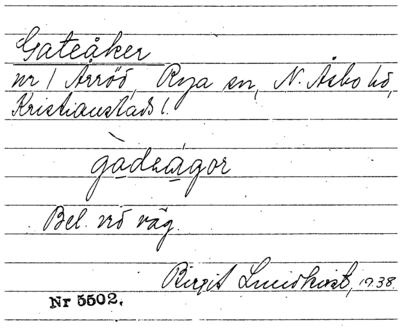 Gateåker
nr 1 Årröd, Rya sn, N. Åsbo hd,
Kristianstads l.
gadeågor
Bel. vid väg.
Birgit Lundkvist, 1938.
Nr 5502.